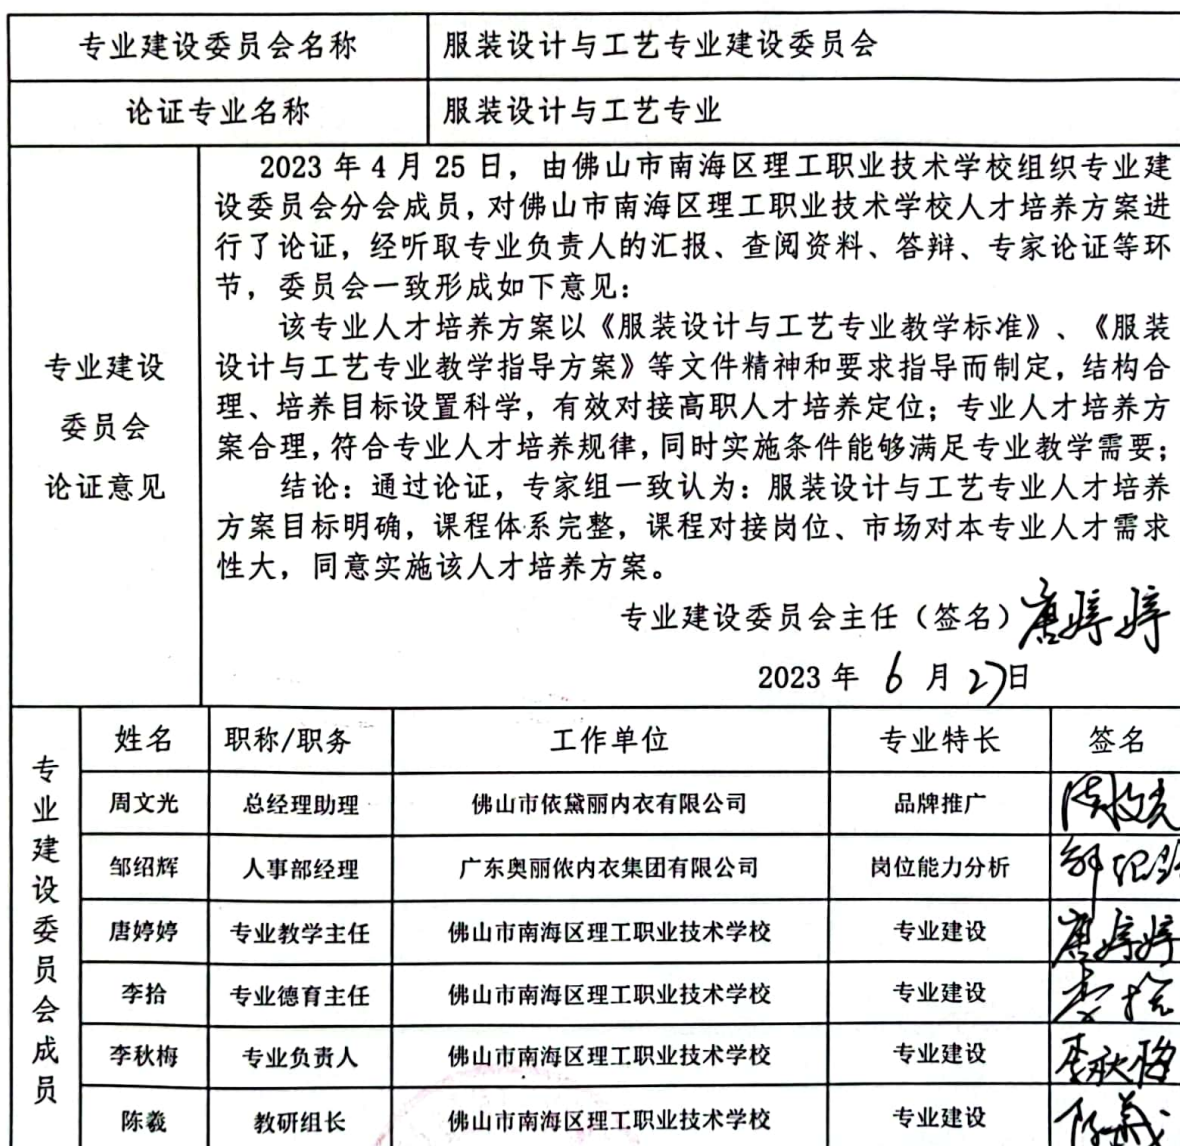 专业建设委员会名称 服装设计与工艺专业建设委员会
论证专业名称 服装设计与工艺专业
专业建设
委员会
论证意见
2023 年 4 月 25 日，由佛山市南海区理工职业技术学校组织专业建
设委员会分会成员，对佛山市南海区理工职业技术学校人才培养方案进
行了论证，经听取专业负责人的汇报、查阅资料、答辩、专家论证等环
节，委员会一致形成如下意见：
该专业人才培养方案以《服装设计与工艺专业教学标准》、《服装
设计与工艺专业教学指导方案》等文件精神和要求指导而制定，结构合
理、培养目标设置科学，有效对接高职人才培养定位；专业人才培养方
案合理，符合专业人才培养规律，同时实施条件能够满足专业教学需要；
结论：通过论证，专家组一致认为：服装设计与工艺专业人才培养
方案目标明确，课程体系完整，课程对接岗位、市场对本专业人才需求
性大，同意实施该人才培养方案。
专业建设委员会主任（签名）唐婷婷
2023 年 6 月 27日
专业建设委员会成员
姓名 职称/职务 工作单位 专业特长 签名
周文光 总经理助理 佛山市依黛丽内衣有限公司 品牌推广 周文光
邹绍辉 人事部经理 广东奥丽侬内衣集团有限公司 岗位能力分析
唐婷婷 专业教学主任 佛山市南海区理工职业技术学校 专业建设 唐婷婷
李拾 专业德育主任 佛山市南海区理工职业技术学校 专业建设 李拾
李秋梅 专业负责人 佛山市南海区理工职业技术学校 专业建设 李秋梅
陈羲 教研组长 佛山市南海区理工职业技术学校 专业建设